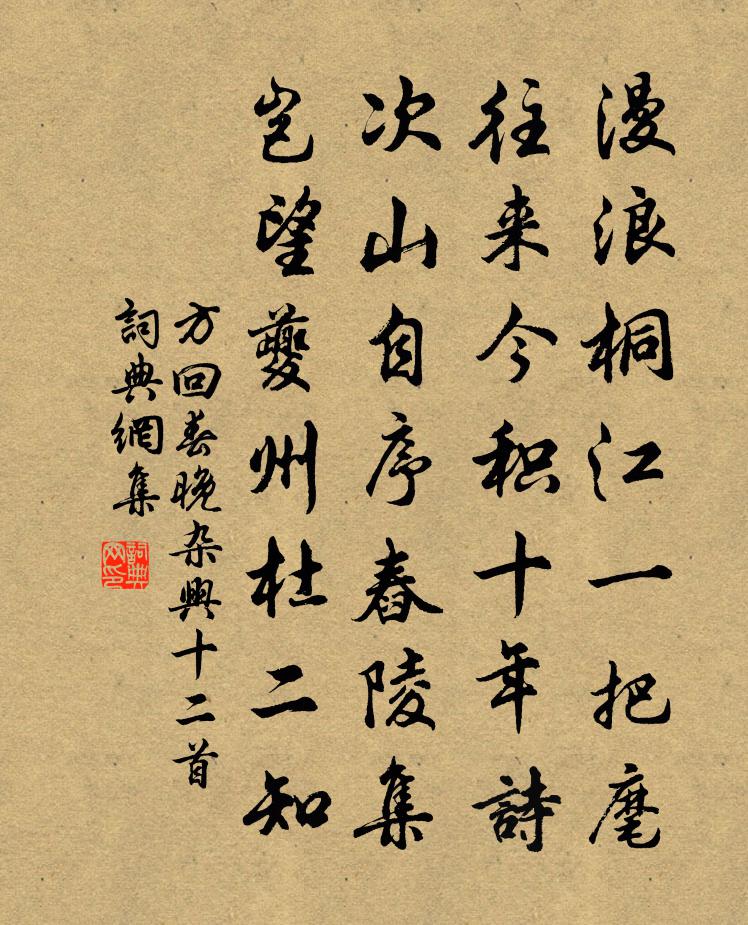 漫浪桐江一把麾
往来今积十年詩
次山自序舂陵集
岂望夔州杜二知
方回春晚杂興十二首
詞典網集
詞典网印